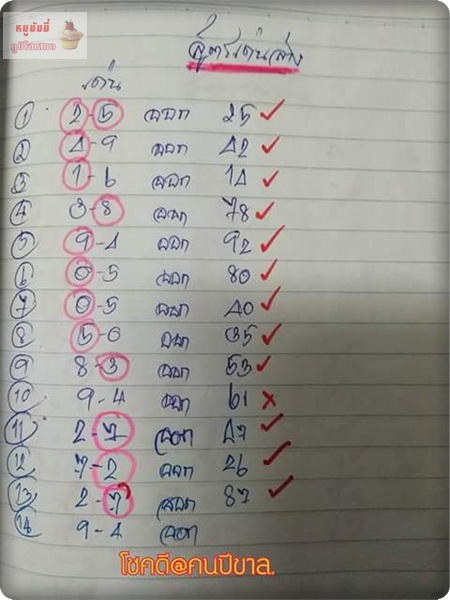 หมูมัมมี่
ภูมิใจเสนอ
2
สูตรเด่นล่าง
เด่น
1 2-5 ออก 25 ✓
2 4-9 ออก 42 ✓
3 1-6 ออก 14 ✓
4 3-8 ออก 78 ✓
5 9-4 ออก 92 ✓
6 0-5 ออก 80 ✓
7 0-5 ออก 40 ✓
8 5-0 ออก 35 ✓
9 8-3 ออก 53 ✓
10 9-4 ออก 61 ×
11 2-7 ออก 47 ✓
12 7-2 ออก 26 ✓
13 2-7 ออก 87 ✓
14 9-4 ออก
โชคดี@คนปีขาล.